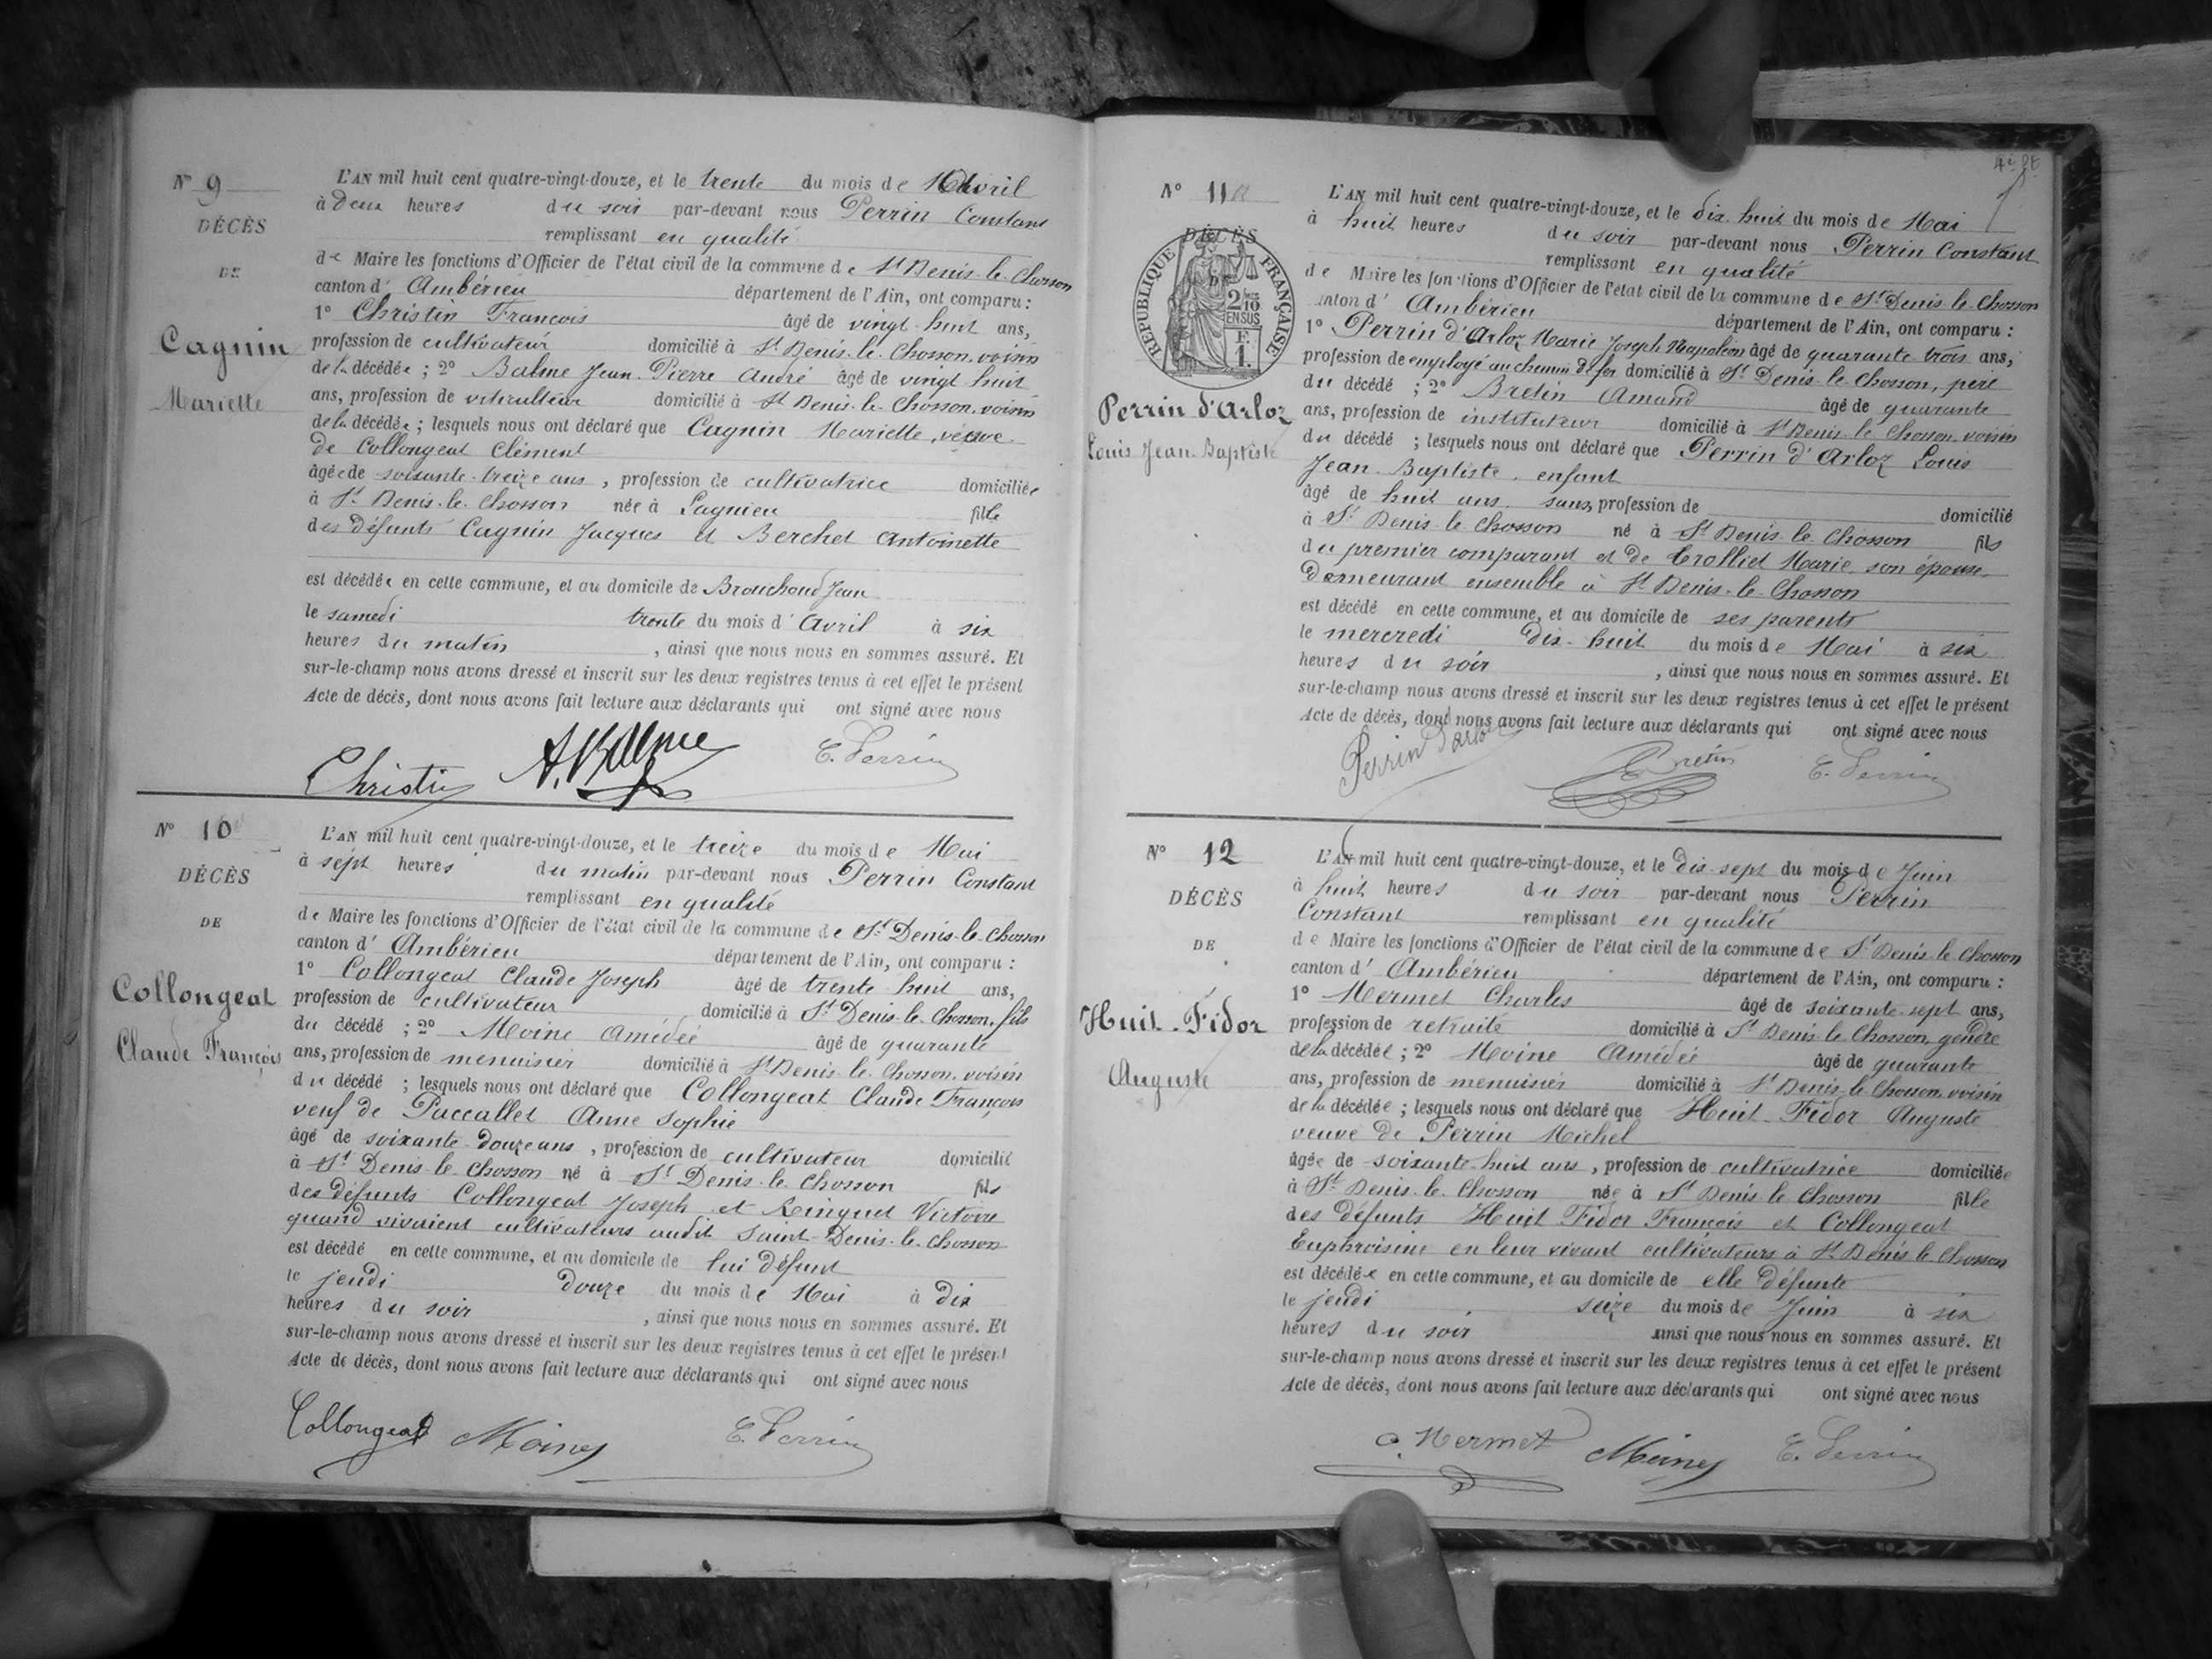 N° 9
DÉCÈS
DE
Cagnin
Mariette
L'AN mil huit cent quatre-vingt-douze, et le trente du mois de Avril
à deux heures du soir par-devant nous Perrin Constant
remplissant en qualité
de Maire les fonctions d'Officier de l'état civil de la commune de St Denis-le-Chosson
canton d' Ambérieu département de l'Ain, ont comparu :
1° Christin François âgé de vingt-huit ans,
profession de cultivateur domicilié à St Denis-le-Chosson, voisin
de la décédée ; 2° Balme Jean-Pierre André âgé de vingt huit
ans, profession de viticulteur domicilié à St Denis-le-Chosson, voisin
de la décédée ; lesquels nous ont déclaré que Cagnin Mariette, veuve
de Collongeat Clément
âgée de soixante-treize ans, profession de cultivatrice domiciliée
à St Denis-le-Chosson née à Lagnieu fille
des défunts Cagnin Jacques et Berchet Antoinette
est décédée en cette commune, et au domicile de Brouchoud Jean
le samedi trente du mois d' Avril à six
heures du matin, ainsi que nous nous en sommes assuré. Et
sur-le-champ nous avons dressé et inscrit sur les deux registres tenus à cet effet le présent
Acte de décès, dont nous avons fait lecture aux déclarants qui ont signé avec nous
Christin A. Balme C. Perrin
N° 10
DÉCÈS
DE
Collongeat
Claude François
L'AN mil huit cent quatre-vingt-douze, et le treize du mois de Mai
à sept heures du matin par-devant nous Perrin Constant
remplissant en qualité
de Maire les fonctions d'Officier de l'état civil de la commune de St Denis-le-Chosson
canton d' Ambérieu département de l'Ain, ont comparu :
1° Collongeat Claude Joseph âgé de trente-huit ans,
profession de cultivateur domicilié à St Denis-le-Chosson, fils
du décédé ; 2° Moine Amédée âgé de quarante
ans, profession de menuisier domicilié à St Denis-le-Chosson, voisin
du décédé ; lesquels nous ont déclaré que Collongeat Claude François
veuf de Paccallet Anne Sophie
âgé de soixante-douze ans, profession de cultivateur domicilié
à St Denis-le-Chosson né à St Denis-le-Chosson fils
des défunts Collongeat Joseph et Ringuet Victoire
quand vivaient cultivateurs audit Saint-Denis-le-Chosson
est décédé en cette commune, et au domicile de lui défunt
le jeudi douze du mois de Mai à dix
heures du soir, ainsi que nous nous en sommes assuré. Et
sur-le-champ nous avons dressé et inscrit sur les deux registres tenus à cet effet le présent
Acte de décès, dont nous avons fait lecture aux déclarants qui ont signé avec nous
Collongeat Moine C. Perrin
N° 11
DÉCÈS
DE
RÉPUBLIQUE FRANÇAISE
2/10 EN SUS
F. 1.
Perrin d'Arloz
Louis Jean-Baptiste
L'AN mil huit cent quatre-vingt-douze, et le dix-huit du mois de Mai
à huit heures du soir par-devant nous Perrin Constant
remplissant en qualité
de Maire les fonctions d'Officier de l'état civil de la commune de St Denis-le-Chosson
canton d' Ambérieu département de l'Ain, ont comparu :
1° Perrin d'Arloz Marie Joseph Napoléon âgé de quarante-trois ans,
profession de employé au chemin de fer domicilié à St Denis-le-Chosson, père
du décédé ; 2° Bretin Amand âgé de quarante
ans, profession de instituteur domicilié à St Denis-le-Chosson, voisin
du décédé ; lesquels nous ont déclaré que Perrin d'Arloz Louis
Jean-Baptiste, enfant
âgé de huit ans, sans profession de domicilié
à St Denis-le-Chosson né à St Denis-le-Chosson fils
du premier comparant et de Trolliet Marie, son épouse
demeurant ensemble à St Denis-le-Chosson
est décédé en cette commune, et au domicile de ses parents
le mercredi dix-huit du mois de Mai à six
heures du soir, ainsi que nous nous en sommes assuré. Et
sur-le-champ nous avons dressé et inscrit sur les deux registres tenus à cet effet le présent
Acte de décès, dont nous avons fait lecture aux déclarants qui ont signé avec nous
Perrin d'arloz Bretin C. Perrin
N° 12
DÉCÈS
DE
Huit-Fidor
Auguste
L'AN mil huit cent quatre-vingt-douze, et le dix-sept du mois de Juin
à huit heures du soir par-devant nous Perrin
Constant remplissant en qualité
de Maire les fonctions d'Officier de l'état civil de la commune de St Denis-le-Chosson
canton d' Ambérieu département de l'Ain, ont comparu :
1° Mermet Charles âgé de soixante-sept ans,
profession de retraité domicilié à St Denis-le-Chosson, gendre
de la décédée ; 2° Moine Amédée âgé de quarante
ans, profession de menuisier domicilié à St Denis-le-Chosson, voisin
de la décédée ; lesquels nous ont déclaré que Huit-Fidor Auguste
veuve de Perrin Michel
âgée de soixante-huit ans, profession de cultivatrice domiciliée
à St Denis-le-Chosson née à St Denis-le-Chosson fille
des défunts Huit Fidor François et Collongeat
Euphroisine en leur vivant cultivateurs à St Denis-le-Chosson
est décédée en cette commune, et au domicile de elle défunte
le jeudi seize du mois de Juin à six
heures du soir ainsi que nous nous en sommes assuré. Et
sur-le-champ nous avons dressé et inscrit sur les deux registres tenus à cet effet le présent
Acte de décès, dont nous avons fait lecture aux déclarants qui ont signé avec nous
C. Mermet Moine C. Perrin